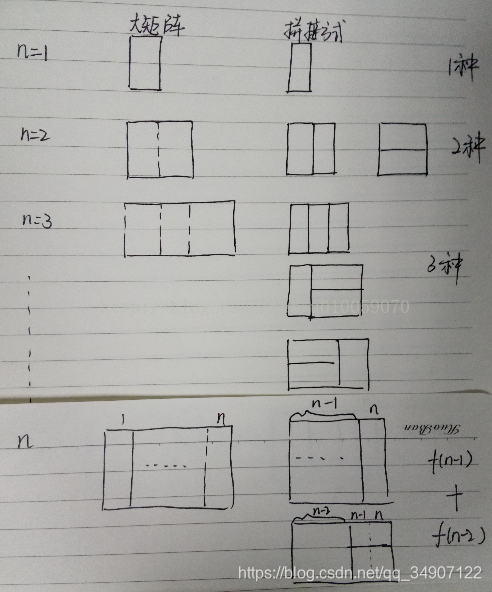 大矩阵 拼接方式
n=1 1种
n=2 2种
n=3
3种
n-1 n
1 n
n f(n-1)
+
n-2 n-1 n
f(n-2)
https://blog.csdn.net/qq_34907122